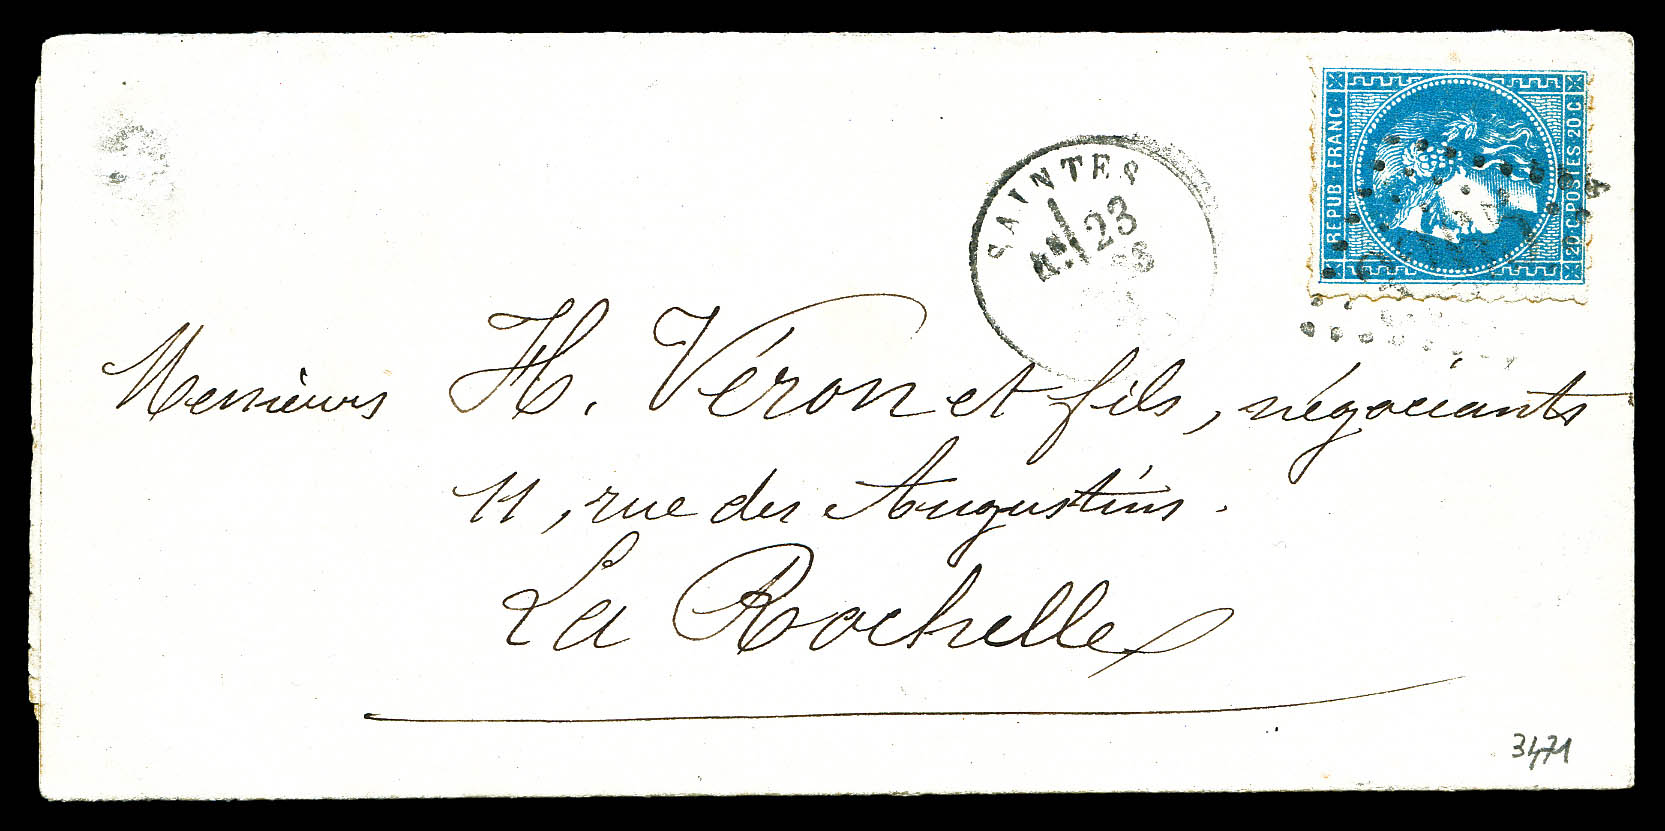 REPUB. FRANC.
20 C POSTES 20 C
SAINTES
23
Messieurs H. Véron et fils, négociants
11, rue des Augustins.
La Rochelle
3471